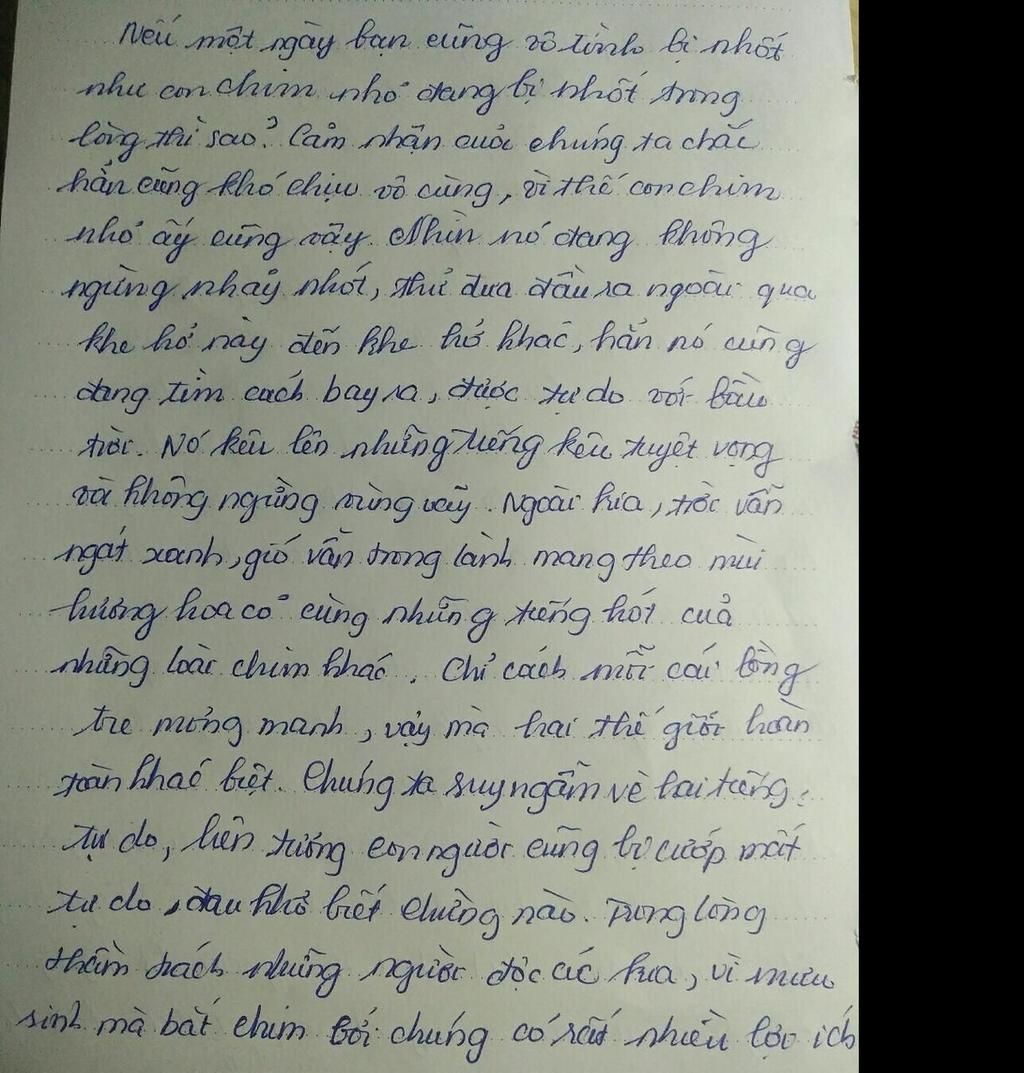 Nếu một ngày bạn cũng vô tình bị nhốt
như con chim nhỏ đang bị nhốt trong
lồng thì sao? Cảm nhận của chúng ta chắc
hẳn cũng khó chịu vô cùng, vì thế con chim
nhỏ ấy cũng vậy. Nhìn nó đang không
ngừng nhảy nhót, thử đưa đầu ra ngoài qua
khe hở này đến khe hở khác, hẳn nó cũng
đang tìm cách bay ra, được tự do với bầu
trời. Nó kêu lên những tiếng kêu tuyệt vọng
và không ngừng vùng vẫy. Ngoài kia, trời vẫn
ngát xanh, gió vẫn trong lành mang theo mùi
hương hoa cỏ cùng những tiếng hót của
những loài chim khác. Chỉ cách mỗi cái lồng
tre mỏng manh, vậy mà hai thế giới hoàn
toàn khác biệt. Chúng ta suy ngẫm về hai tiếng
tự do, liên tưởng con người cũng bị cướp mất
tự do, đau khổ biết chừng nào. Trong lòng
thầm trách những người độc ác kia, vì mưu
sinh mà bắt chim bởi chúng có rất nhiều lợi ích